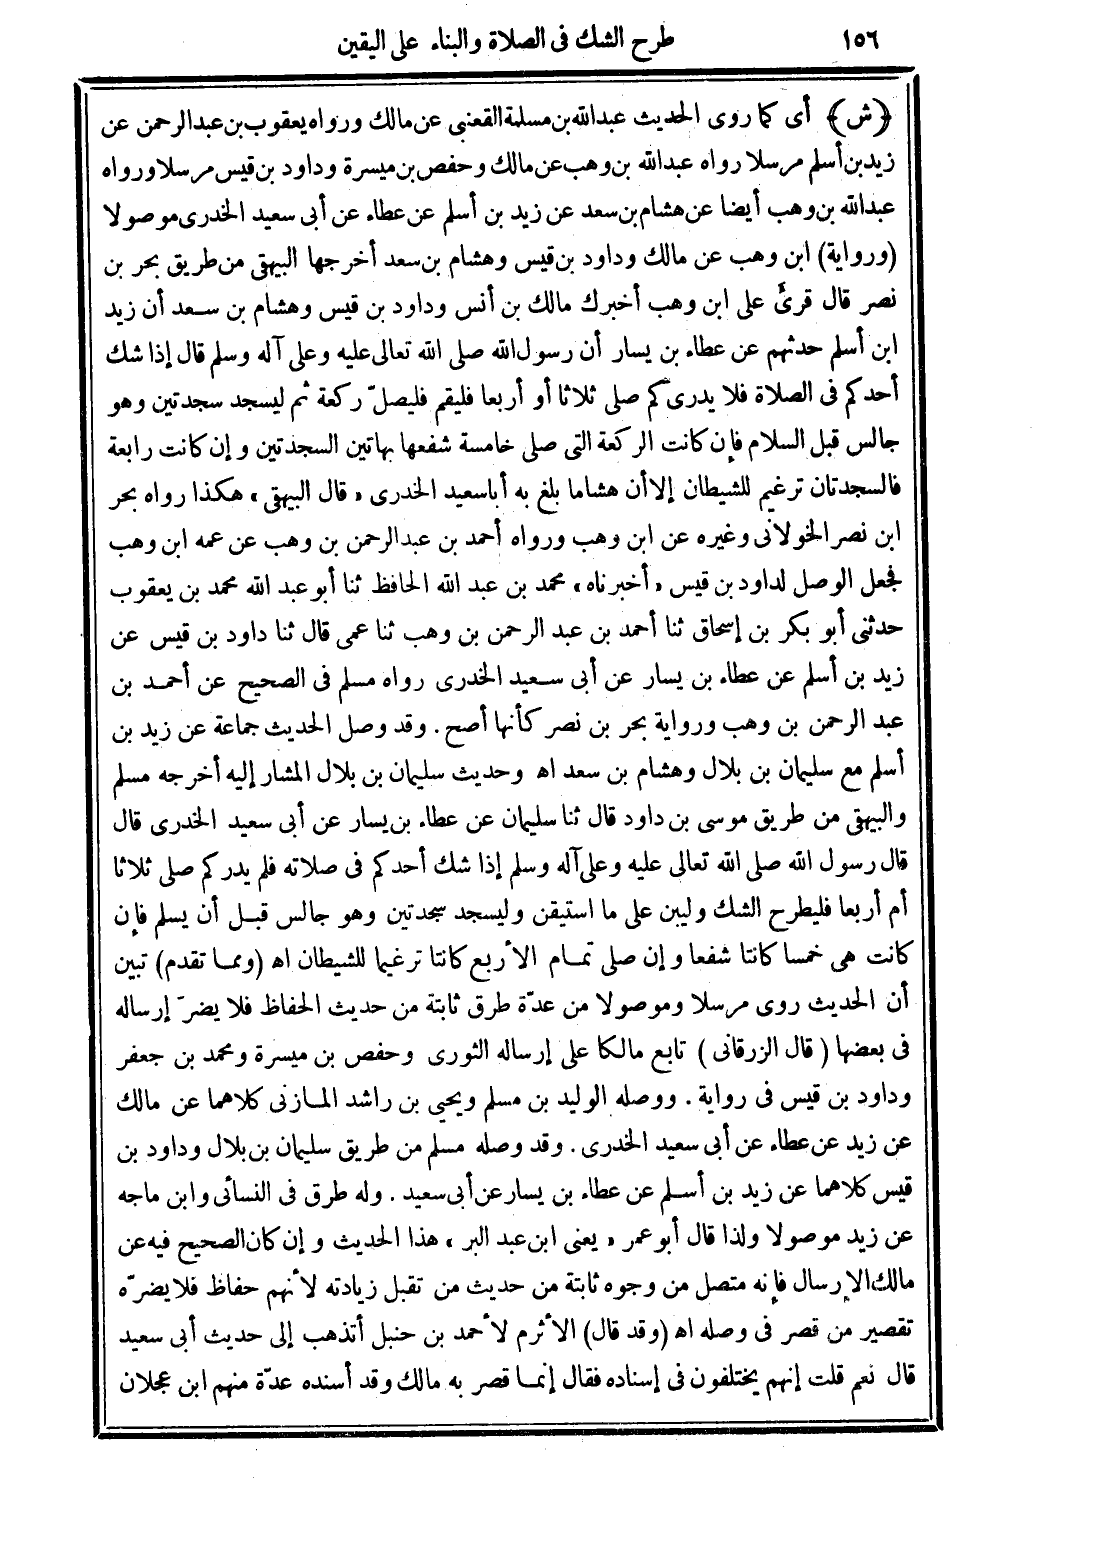 ١٥٦ طرح الشك فى الصلاة والبناء على اليقين
﴿ش﴾ أى كما روى الحديث عبدالله بن مسلمة القعنبى عن مالك ورواه يعقوب بن عبدالرحمن عن
زيد بن أسلم مرسلا رواه عبدالله بن وهب عن مالك وحفص بن ميسرة وداود بن قيس مرسلا ورواه
عبدالله بن وهب أيضا عن هشام بن سعد عن زيد بن أسلم عن عطاء عن أبى سعيد الخدرى موصولا
(ورواية) ابن وهب عن مالك وداود بن قيس وهشام بن سعد أخرجها البيهقى من طريق بحر بن
نصر قال قرئ على ابن وهب أخبرك مالك بن أنس وداود بن قيس وهشام بن سعد أن زيد
ابن أسلم حدثهم عن عطاء بن يسار أن رسول الله صلى الله تعالى عليه وعلى آله وسلم قال إذا شك
أحدكم فى الصلاة فلا يدرى كم صلى ثلاثا أو أربعا فليقم فليصلّ ركعة ثم ليسجد سجدتين وهو
جالس قبل السلام فإن كانت الركعة التى صلى خامسة شفعها بهاتين السجدتين وإن كانت رابعة
فالسجدتان ترغيم للشيطان إلا أن هشاما بلغ به أبا سعيد الخدرى «قال البيهقى» هكذا رواه بحر
ابن نصر الخولانى وغيره عن ابن وهب ورواه أحمد بن عبدالرحمن بن وهب عن عمه ابن وهب
فجعل الوصل لداود بن قيس «أخبرناه» محمد بن عبد الله الحافظ ثنا أبو عبد الله محمد بن يعقوب
حدثنى أبو بكر بن إسحاق ثنا أحمد بن عبد الرحمن بن وهب ثنا عمى قال ثنا داود بن قيس عن
زيد بن أسلم عن عطاء بن يسار عن أبى سعيد الخدرى رواه مسلم فى الصحيح عن أحمد بن
عبد الرحمن بن وهب ورواية بحر بن نصر كأنها أصح. وقد وصل الحديث جماعة عن زيد بن
أسلم مع سليمان بن بلال وهشام بن سعد اه وحديث سليمان بن بلال المشار إليه أخرجه مسلم
والبيهقى من طريق موسى بن داود قال ثنا سليمان عن عطاء بن يسار عن أبى سعيد الخدرى قال
قال رسول الله صلى الله تعالى عليه وعلى آله وسلم إذا شك أحدكم فى صلاته فلم يدر كم صلى ثلاثا
أم أربعا فليطرح الشك وليبن على ما استيقن وليسجد سجدتين وهو جالس قبل أن يسلم فإن
كانت هى خمسا كانتا شفعا وإن صلى تمام الأربع كانتا ترغيما للشيطان اه (ومما تقدم) تبين
أن الحديث روى مرسلا وموصولا من عدّة طرق ثابتة من حديث الحفاظ فلا يضرّ إرساله
فى بعضها (قال الزرقانى) تابع مالكا على إرساله الثورى وحفص بن ميسرة ومحمد بن جعفر
وداود بن قيس فى رواية. ووصله الوليد بن مسلم ويحيى بن راشد المازنى كلاهما عن مالك
عن زيد عن عطاء عن أبى سعيد الخدرى. وقد وصله مسلم من طريق سليمان بن بلال وداود بن
قيس كلاهما عن زيد بن أسلم عن عطاء بن يسار عن أبى سعيد. وله طرق فى النسائى وابن ماجه
عن زيد موصولا ولذا قال أبو عمر «يعنى ابن عبد البر» هذا الحديث وإن كان الصحيح فيه عن
مالك الإرسال فإنه متصل من وجوه ثابتة من حديث من تقبل زيادته لأنهم حفاظ فلا يضرّه
تقصير من قصر فى وصله اه (وقد قال) الأثرم لأحمد بن حنبل أتذهب إلى حديث أبى سعيد
قال نعم قلت إنهم يختلفون فى إسناده فقال إنما قصر به مالك وقد أسنده عدّة منهم ابن عجلان